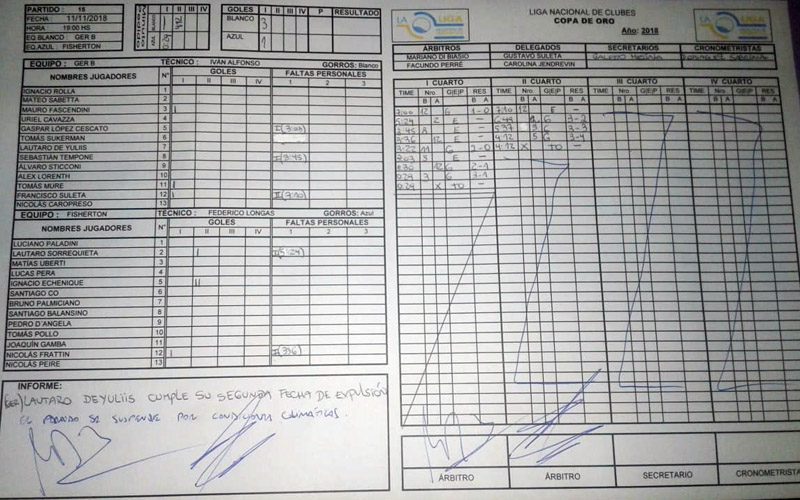 PARTIDO : 16
FECHA : 11/11/2018
HORA : 19:00 HS
EQ.BLANCO : GER B
EQ.AZUL : FISHERTON
I II III IV
GOLES I II III IV P RESULTADO
BLANCO 3
AZUL 1
EQUIPO : GER B TÉCNICO : IVÁN ALFONSO GORROS: Blanco
NOMBRES JUGADORES N° GOLES FALTAS PERSONALES
I II III IV 1 2 3
IGNACIO ROLLA 1
MATEO SABETTA 2
MAURO FASCENDINI 3 I
URIEL CAVAZZA 4
GASPAR LÓPEZ CESCATO 5 I(7:03)
TOMÁS SUKERMAN 6
LAUTARO DE YULIIS 7
SEBASTIÁN TEMPONE 8 I(3:45)
ÁLVARO STICCONI 9
ALEX LORENTH 10
TOMÁS MURE 11 I
FRANCISCO SULETA 12 I II(7:10)
NICOLÁS CAROPRESO 13
EQUIPO : FISHERTON TÉCNICO : FEDERICO LONGAS GORROS: Azul
NOMBRES JUGADORES N° GOLES FALTAS PERSONALES
I II III IV 1 2 3
LUCIANO PALADINI 1
LAUTARO SORREQUIETA 2 I I(5:24)
MATÍAS UBERTI 3
LUCAS PERA 4
IGNACIO ECHENIQUE 5 II
SANTIAGO CO 6
BRUNO PALMICIANO 7
SANTIAGO BALANSINO 8
PEDRO D'ANGELA 9
TOMÁS POLLO 10
JOAQUÍN GAMBA 11
NICOLÁS FRATTIN 12 I I(3:36)
NICOLÁS PEIRE 13
INFORME:
(GER) LAUTARO DEYULIIS CUMPLE SU SEGUNDA FECHA DE EXPULSIÓN
EL PARTIDO SE SUSPENDE POR CONDICIONES CLIMÁTICAS.
LA LIGA
LIGA NACIONAL DE CLUBES
COPA DE ORO
Año: 2018
LA LIGA
ÁRBITROS DELEGADOS SECRETARIOS CRONOMETRISTAS
MARIANO DI BIASIO GUSTAVO SULETA
FACUNDO PERRÉ CAROLINA JENDREVIN
I CUARTO II CUARTO III CUARTO IV CUARTO
TIME Nro G|E|P RES TIME Nro G|E|P RES TIME Nro G|E|P RES TIME Nro G|E|P RES
B A B A B A B A B A B A B A B A
7:00 12 G 1-0 7:10 12 E -
5:24 2 E - G 3-2
3:45 8 E - 5:37 5 G 3-3
3:36 12 E - 4:12 5 G 3-4
3:22 11 G 2-0 4:12 X TO -
7:03 5 E -
12 G 2-1
0:29 3 G 3-1
0:29 X TO -
ÁRBITRO ÁRBITRO SECRETARIO CRONOMETRISTA